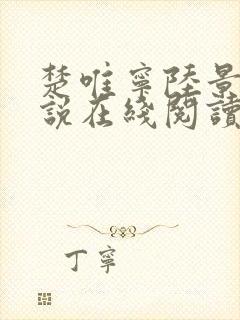 楚唯寧陸景
說在綫閱讀
丁寧